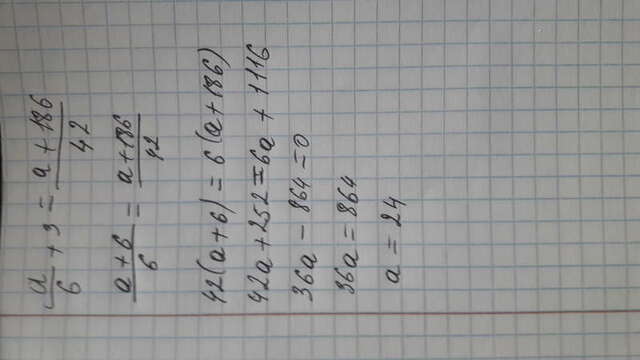 a/6 + 3 = (a + 186)/42
(a + 6)/6 = (a + 186)/42
42(a + 6) = 6(a + 186)
42a + 252 = 6a + 1116
36a - 864 = 0
36a = 864
a = 24